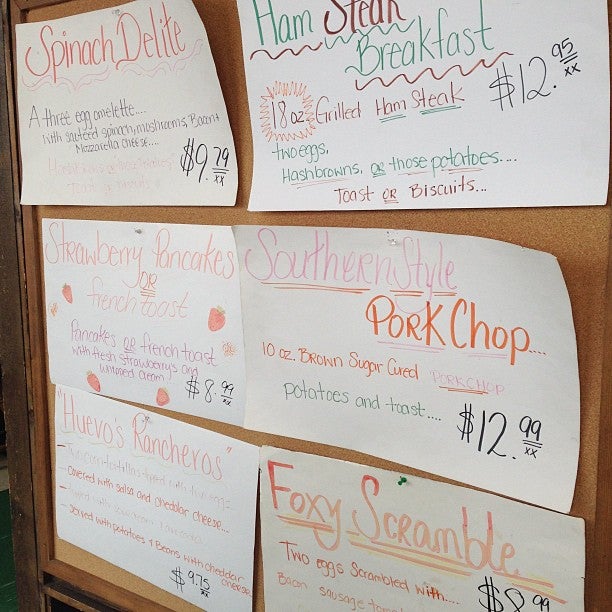 Spinach Delite
A three egg omelette....
with sauteed spinach, mushrooms, Bacon &
Mozzarella cheese....
Hashbrowns or those potatoes
Toast or biscuits
$9.79
xx
Ham Steak
Breakfast
$12.95
xx
18 oz Grilled Ham Steak
two eggs,
Hashbrowns, or those potatoes....
Toast or Biscuits...
Strawberry Pancakes
OR
french toast
Pancakes or french toast
with fresh strawberry's and
whipped cream
$8.99
xx
Southern Style
PORK CHOP....
10 oz. Brown Sugar Cured PORKCHOP
potatoes and toast....
$12.99
xx
"Huevo's Rancheros"
- Two corn tortillas topped with two eggs
- Covered with salsa and cheddar cheese...
- Topped with sour cream
- served with potatoes & Beans with cheddar
cheese
$9.75
xx
Foxy Scramble
Two eggs Scrambled with....
Bacon sausage
99